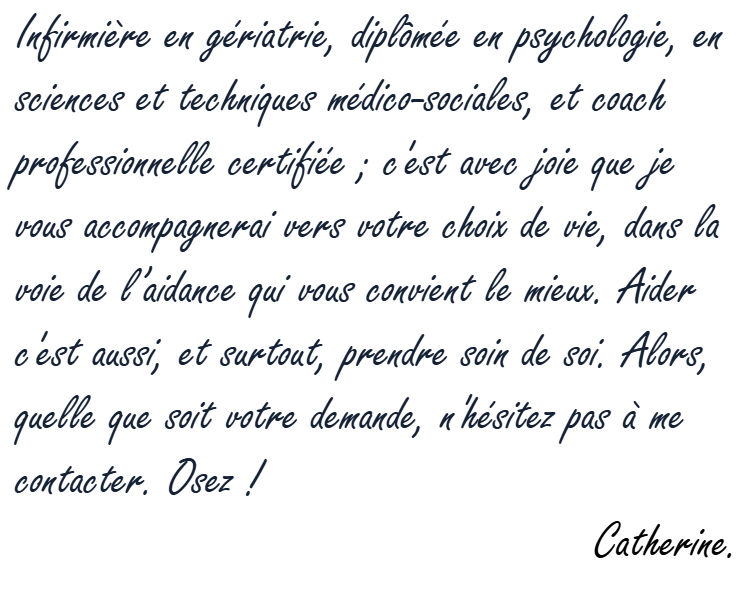 Infirmière en gériatrie, diplômée en psychologie, en
sciences et techniques médico-sociales, et coach
professionnelle certifiée ; c'est avec joie que je
vous accompagnerai vers votre choix de vie, dans la
voie de l'aidance qui vous convient le mieux. Aider
c'est aussi, et surtout, prendre soin de soi. Alors,
quelle que soit votre demande, n'hésitez pas à me
contacter. Osez !
Catherine.